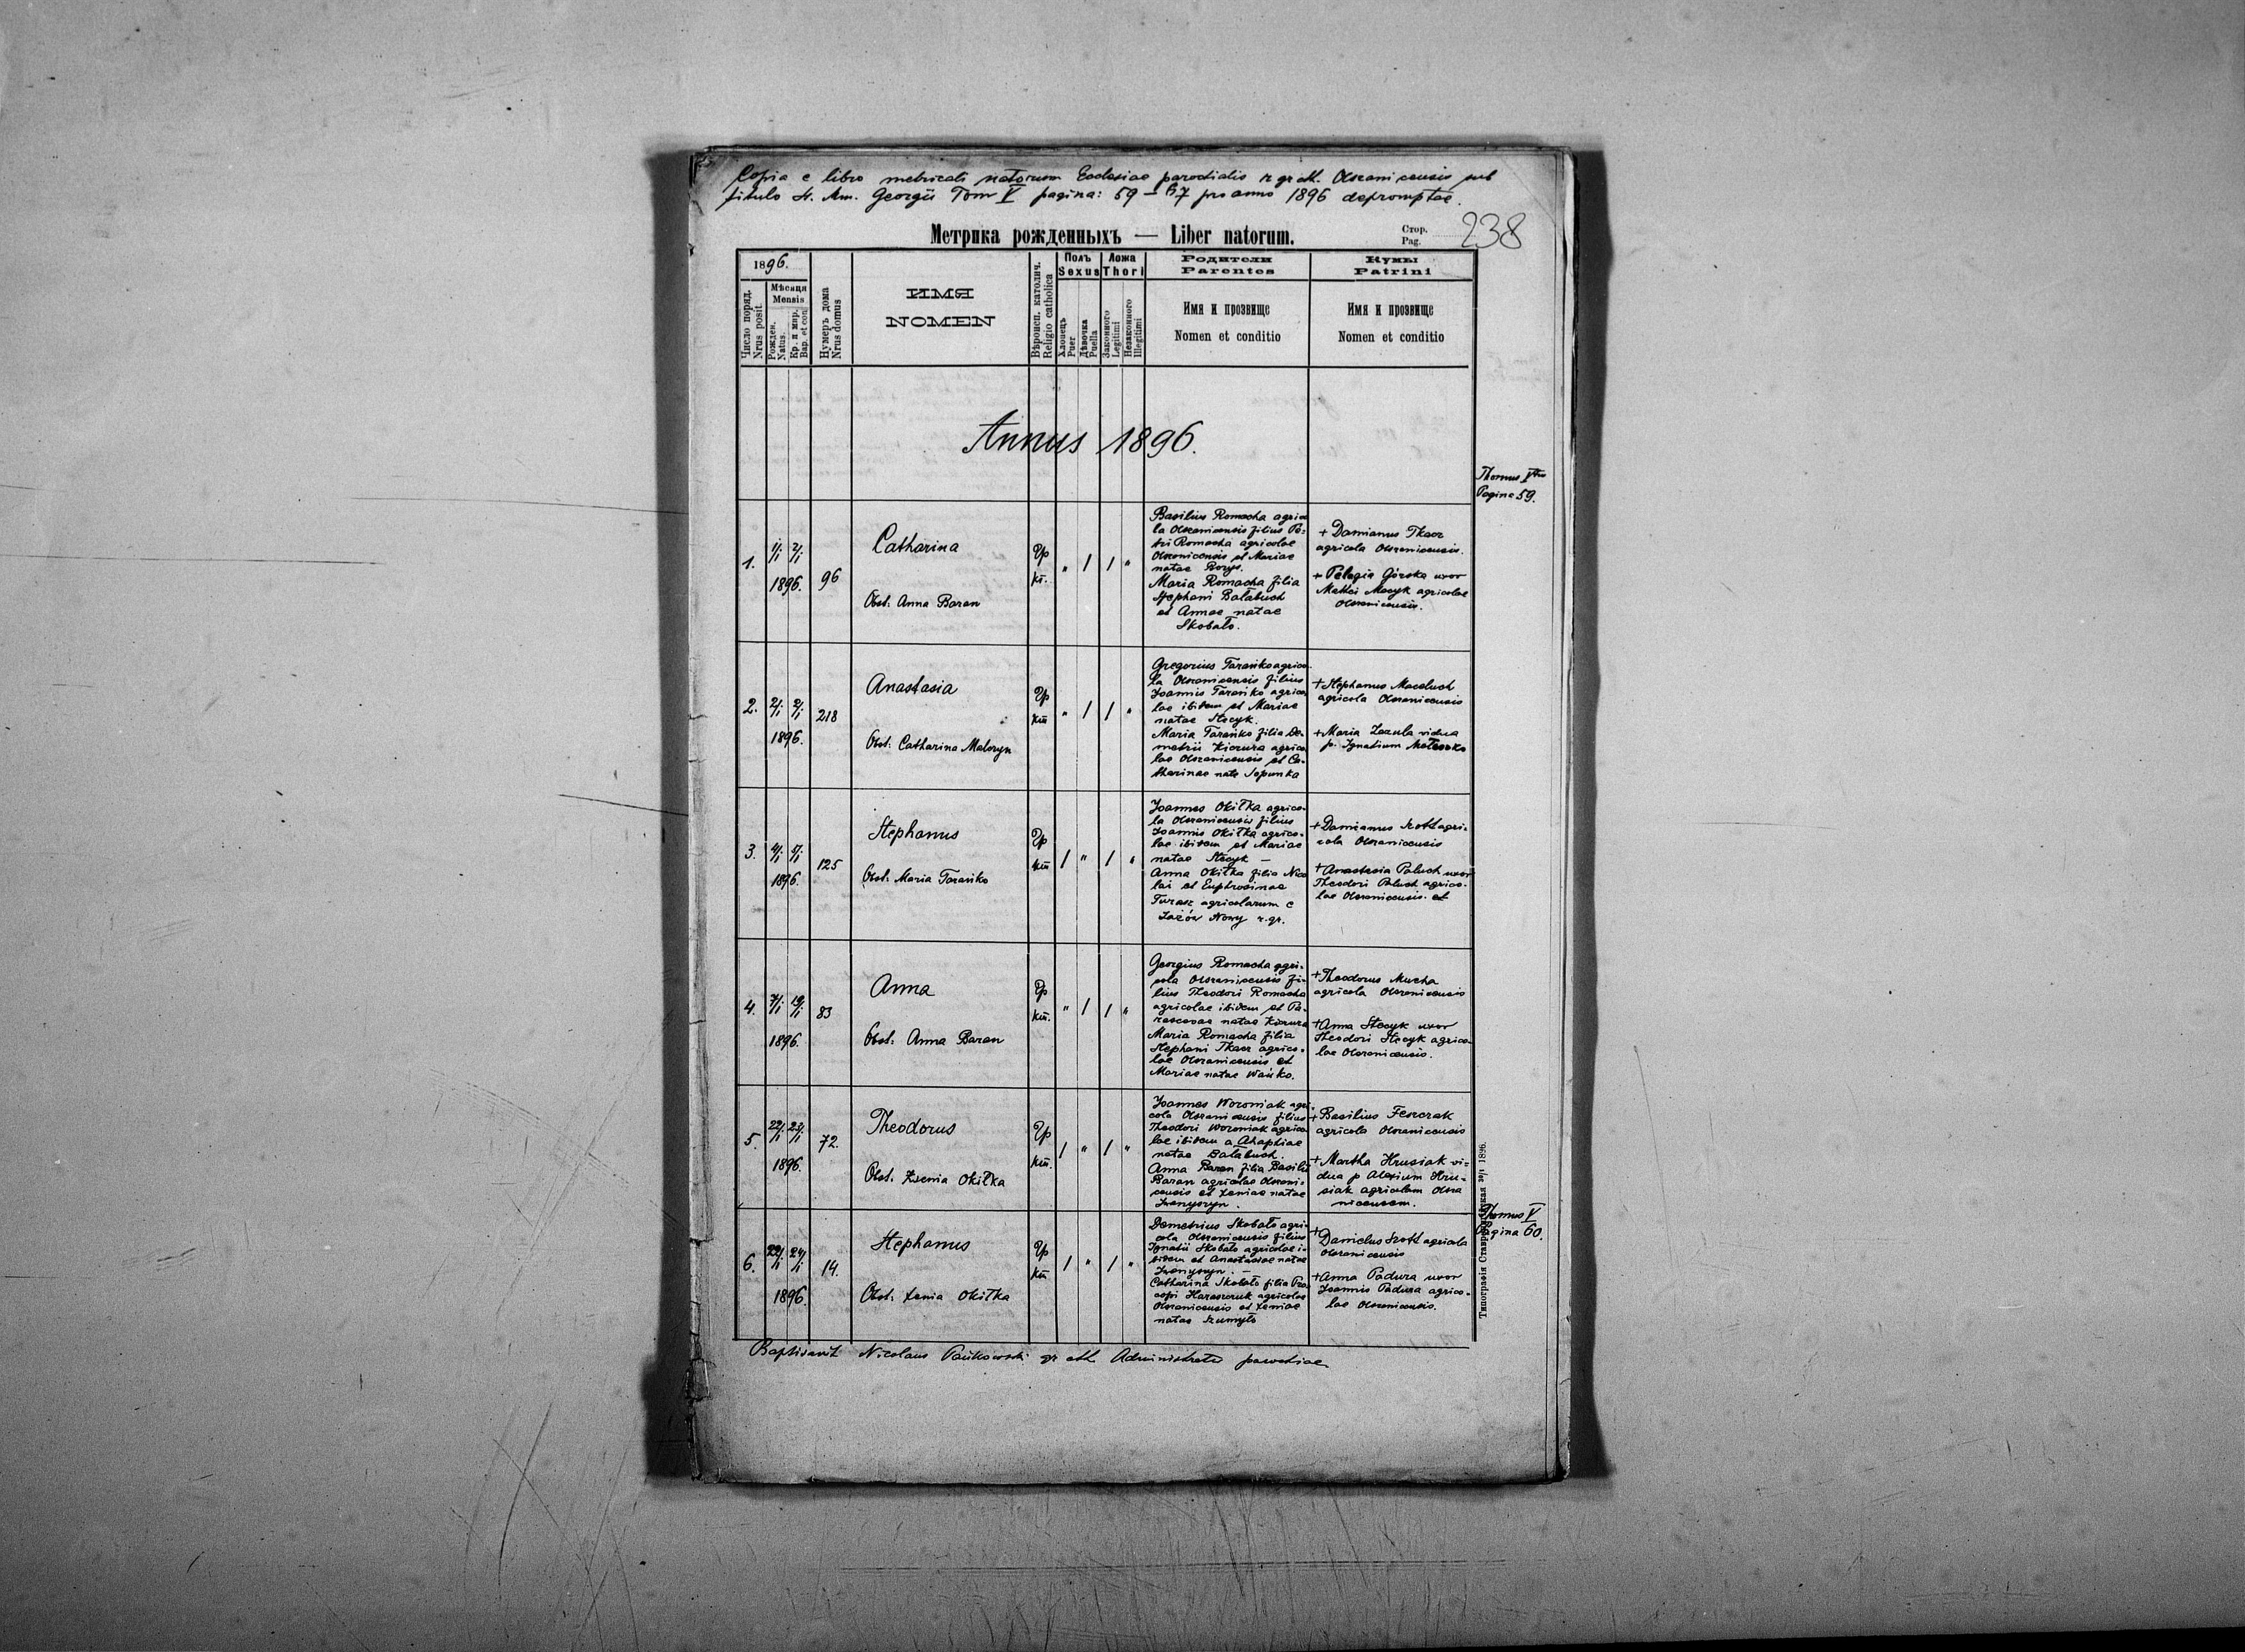 Copia e libro metricali natorum Ecclesiae parochialis r. gr. cat. Olszanicensis sub
titulo St. Mm. Georgii Tom V pagina: 59 – 67 pro anno 1896 depromptae.
Метрика рожденныхъ — Liber natorum.
Стор.
Pag. 238
1896.
Число поряд.
Nrus posit.
Мѣсяця
Mensis
Рожден.
Natus.
Кр. и мир.
Bap. et con.
Нумеръ дома
Nrus domus
ИМЯ
NOMEN
Вѣроисп. католич.
Religio catholica
Полъ
Sexus
Хлопець
Puer
Дѣвочка
Puella
Ложа
Thori
Законного
Legitimi
Незаконного
Illegitimi
Родители
Parentes
Имя и прозвище
Nomen et conditio
Кумы
Patrini
Имя и прозвище
Nomen et conditio
Annus 1896.
Thomus V
Pagina 59.
1.
1/1 2/1
1896.
96
Catharina
Obst: Anna Baran
Гр
кт.
" / / "
Basilius Romacha agrico
la Olszanicensis filius Pe-
tri Romacha agricolae
Olszanicensis et Mariae
natae Borys.
Maria Romacha filia
Stephani Bałabuch
et Annae natae
Skobało.
+ Damianus Tkacz
agricola Olszanicensis.
+ Pelagia Górska uxor
Matthei Macyk agricolae
Olszanicensis.
2.
2/1 2/1
1896.
218
Anastasia
Obst: Catharina Maloryn
Гр
кт
" / / "
Gregorius Tarańko agrico-
la Olszanicensis filius
Joannis Tarańko agrico
lae ibidem et Mariae
natae Stecyk.
Maria Tarańko filia De-
metrii Kiczura agrico
lae Olszanicensis et Ca-
tharinae nate
+ Stephanus
agricola Olszanicensis
+ Maria vidua
p. Ignatium
3.
4/1 5/1
1896.
125
Stephanus
Obst: Maria Tarańko
Гр
кт
/ " / "
Joannes Okiłka agrico-
la Olszanicensis filius
Joannis Okiłka agrico-
lae ibidem et Mariae
natae Stecyk –
Anna Okiłka filia Nico
lai et Euphrosinae
Turasz agricolarum e
Jazów Nowy r. gr.
+ Damianus Szott agri-
cola Olszanicensis
+ Anastasia Paluch uxor
Theodori Paluch agrico-
lae Olszanicensis. et
4.
7/1 19/1
1896.
83
Anna
Obst: Anna Baran
Гр
кт.
" / / "
Georgius Romacha agri-
cola Olszanicensis fi-
lius Theodori Romacha
agricolae ibidem et Pa-
rascevae natae Kiczura
Maria Romacha filia
Stephani Tkacz agrico-
lae Olszanicensis et
Mariae natae Wańko.
+ Theodorus Mucha
agricola Olszanicensis
+ Anna Stecyk uxor
Theodori Stecyk agrico
lae Olszanicensis.
5
22/1 23/1
1896.
72.
Theodorus
Obst. Xsenia Okiłka
Гр
кт.
/ " / "
Joannes Woroniak agri
cola Olszanicensis filius
Theodori Woroniak agrico
lae ibidem a Ahaphiae
natae Bałabuch.
Anna Baran filia Basilii
Baran agricolae Olszani-
censis et Xeniae natae
Iwanyszyn.
+ Basilius Feszczak
agricola Olszanicensis
+ Martha Hrusiak vi-
dua p Alexium Hru-
siak agricolam Olsza
nicensem.
Thomus V
Pagina 60.
6.
22/1 24/1
1896.
14.
Stephanus
Obst: Xenia Okiłka
Гр
кт
/ " / "
Demetrius Skobało agri-
cola Olszanicensis filius
Ignatii Skobało agricolae i-
bidem et Anastasiae natae
Iwanyszyn. –
Catharina Skobało filia Pro
copii Haraszczuk agricolae
Olszanicensis et Xeniae
natae Szumyło
+ Danielus Szott agricola
Olszanicensis
+ Anna Padura uxor
Joannis Padura agrico-
lae Olszanicensis.
Baptisavit Nicolaus Pańkowski gr. cat. Administrator parochiae